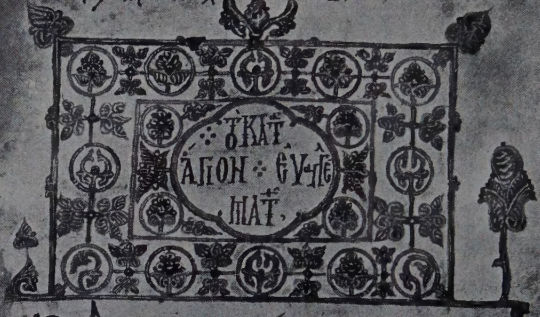 τὸ κατ
ἅγιον εὐαγγέ
ματ,